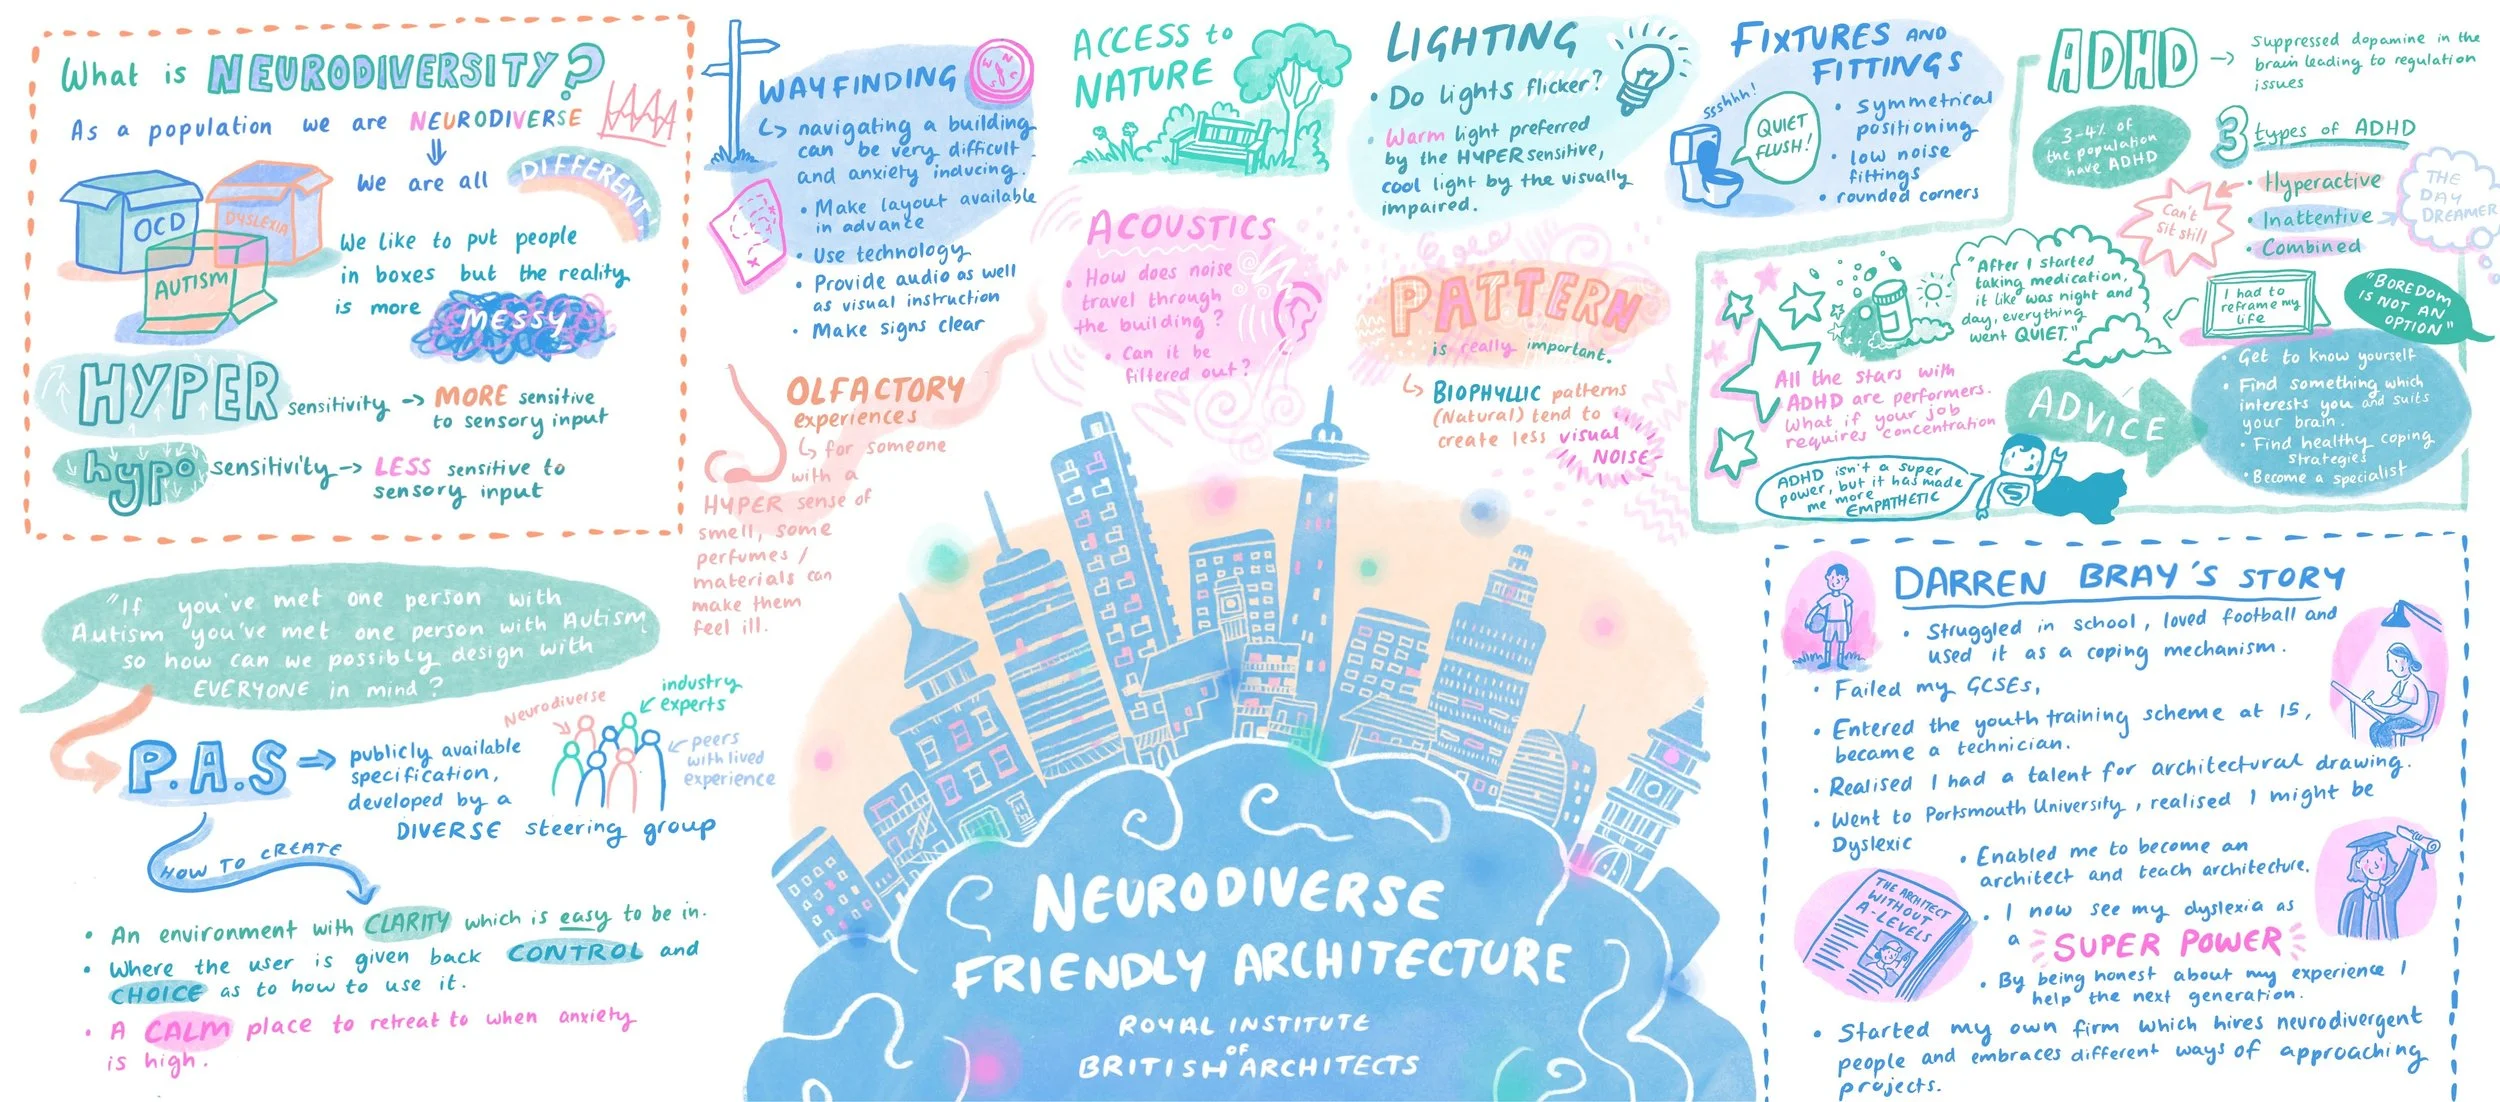 What is NEURODIVERSITY?
As a population we are NEURODIVERSE
We are all DIFFERENT
OCD
DYSLEXIA
AUTISM
We like to put people
in boxes but the reality
is more MESSY
HYPER sensitivity -> MORE sensitive
to sensory input
hypo sensitivity -> LESS sensitive to
sensory input
"If you've met one person with
Autism you've met one person with Autism
so how can we possibly design with
EVERYONE in mind?
P.A.S
publicly available
specification,
developed by a
DIVERSE steering group
Neurodiverse
industry
experts
peers
with lived
experience
HOW TO CREATE
• An environment with CLARITY which is easy to be in.
• Where the user is given back CONTROL and
CHOICE as to how to use it.
• A CALM place to retreat to when anxiety
is high.
WAYFINDING
navigating a building
can be very difficult
and anxiety inducing.
• Make layout available
in advance
• Use technology
• Provide audio as well
as visual instruction
• Make signs clear
OLFACTORY
experiences
for someone
with a
HYPER sense of
smell, some
perfumes /
materials can
make them
feel ill.
ACCESS to
NATURE
ACOUSTICS
• How does noise
travel through
the building?
• Can it be
filtered out?
LIGHTING
• Do lights flicker?
• Warm light preferred
by the HYPER sensitive,
cool light by the visually
impaired.
PATTERN
is really important.
BIOPHYLLIC patterns
(Natural) tend to
create less visual
NOISE
FIXTURES AND
FITTINGS
ssshhh!
QUIET
FLUSH!
• symmetrical
positioning
• low noise
fittings
• rounded corners
NEURODIVERSE
FRIENDLY ARCHITECTURE
ROYAL INSTITUTE
OF
BRITISH ARCHITECTS
ADHD -> Suppressed dopamine in the
brain leading to regulation
issues
3-4% of
the population
have ADHD
3 types of ADHD
• Hyperactive
• Inattentive
• Combined
Can't
sit still
THE
DAY
DREAMER
"After I started
taking medication,
it like was night and
day, everything
went QUIET."
I had to
reframe my
life
"BOREDOM
IS NOT AN
OPTION"
All the stars with
ADHD are performers.
What if your job
requires concentration
ADVICE
• Get to know yourself
• Find something which
interests you and suits
your brain.
• Find healthy coping
strategies
• Become a specialist
ADHD isn't a super
power, but it has made
me more
EMPATHETIC
S
DARREN BRAY'S STORY
• Struggled in school, loved football and
used it as a coping mechanism.
• Failed my GCSEs,
• Entered the youth training scheme at 15,
became a technician.
• Realised I had a talent for architectural drawing.
• Went to Portsmouth University, realised I might be
Dyslexic
• Enabled me to become an
architect and teach architecture.
• I now see my dyslexia as
a SUPER POWER
THE ARCHITECT
WITHOUT
A-LEVELS
• By being honest about my experience I
help the next generation.
• Started my own firm which hires neurodivergent
people and embraces different ways of approaching
projects.